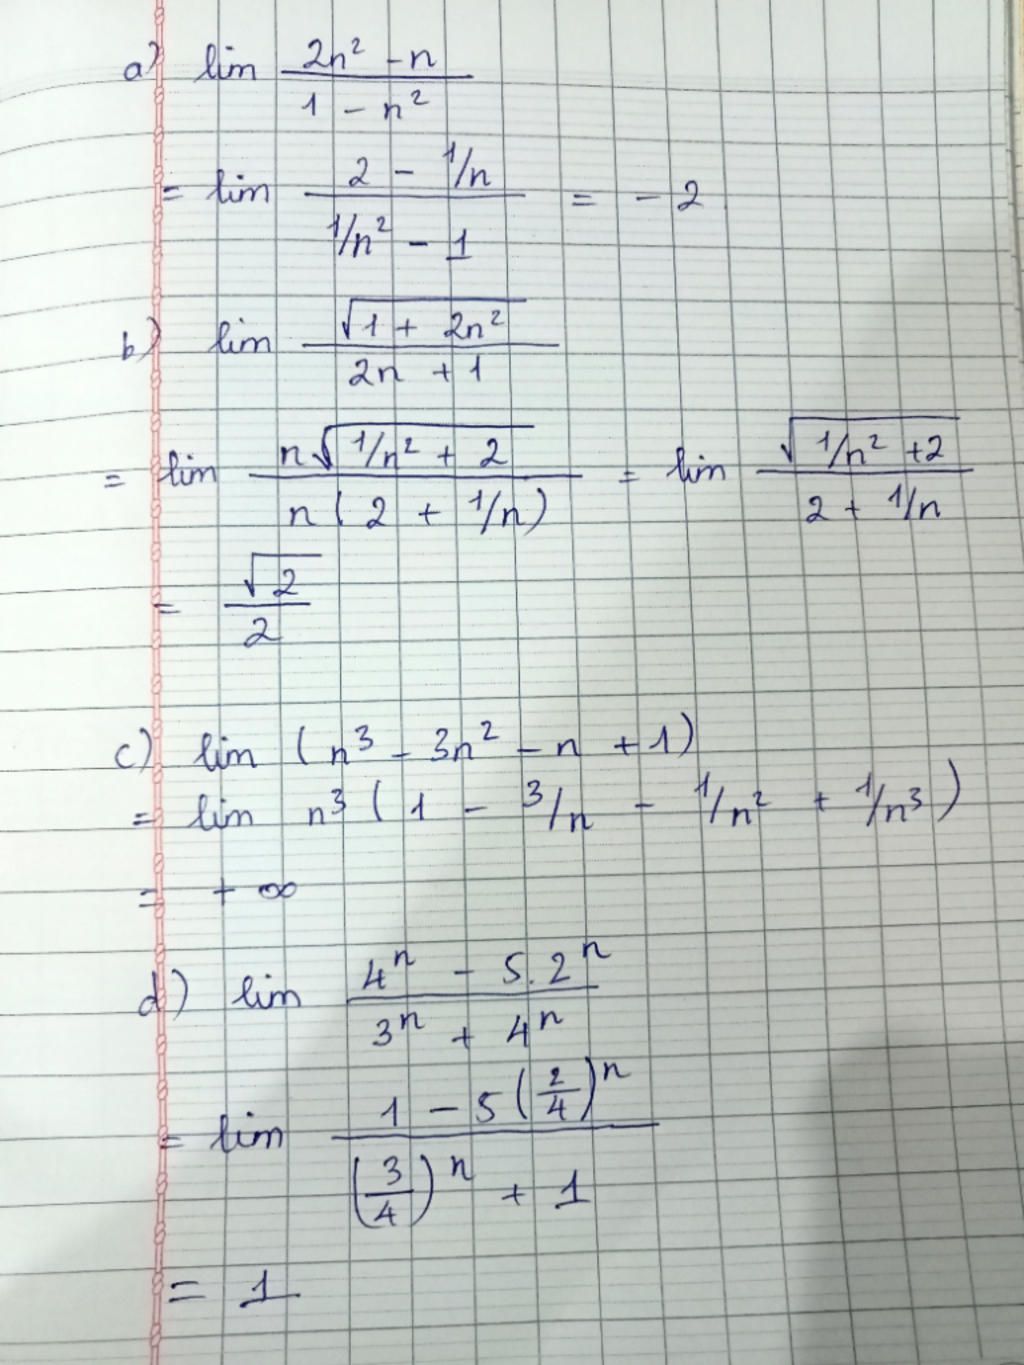 a) lim (2n² - n)/(1 - n²)
= lim (2 - 1/n)/(1/n² - 1) = -2
b) lim √(1 + 2n²)/(2n + 1)
= lim n√(1/n² + 2)/(n(2 + 1/n)) = lim √(1/n² + 2)/(2 + 1/n)
= √2/2
c) lim (n³ - 3n² - n + 1)
= lim n³(1 - 3/n - 1/n² + 1/n³)
= +∞
d) lim (4ⁿ - 5.2ⁿ)/(3ⁿ + 4ⁿ)
= lim (1 - 5(2/4)ⁿ)/((3/4)ⁿ + 1)
= 1